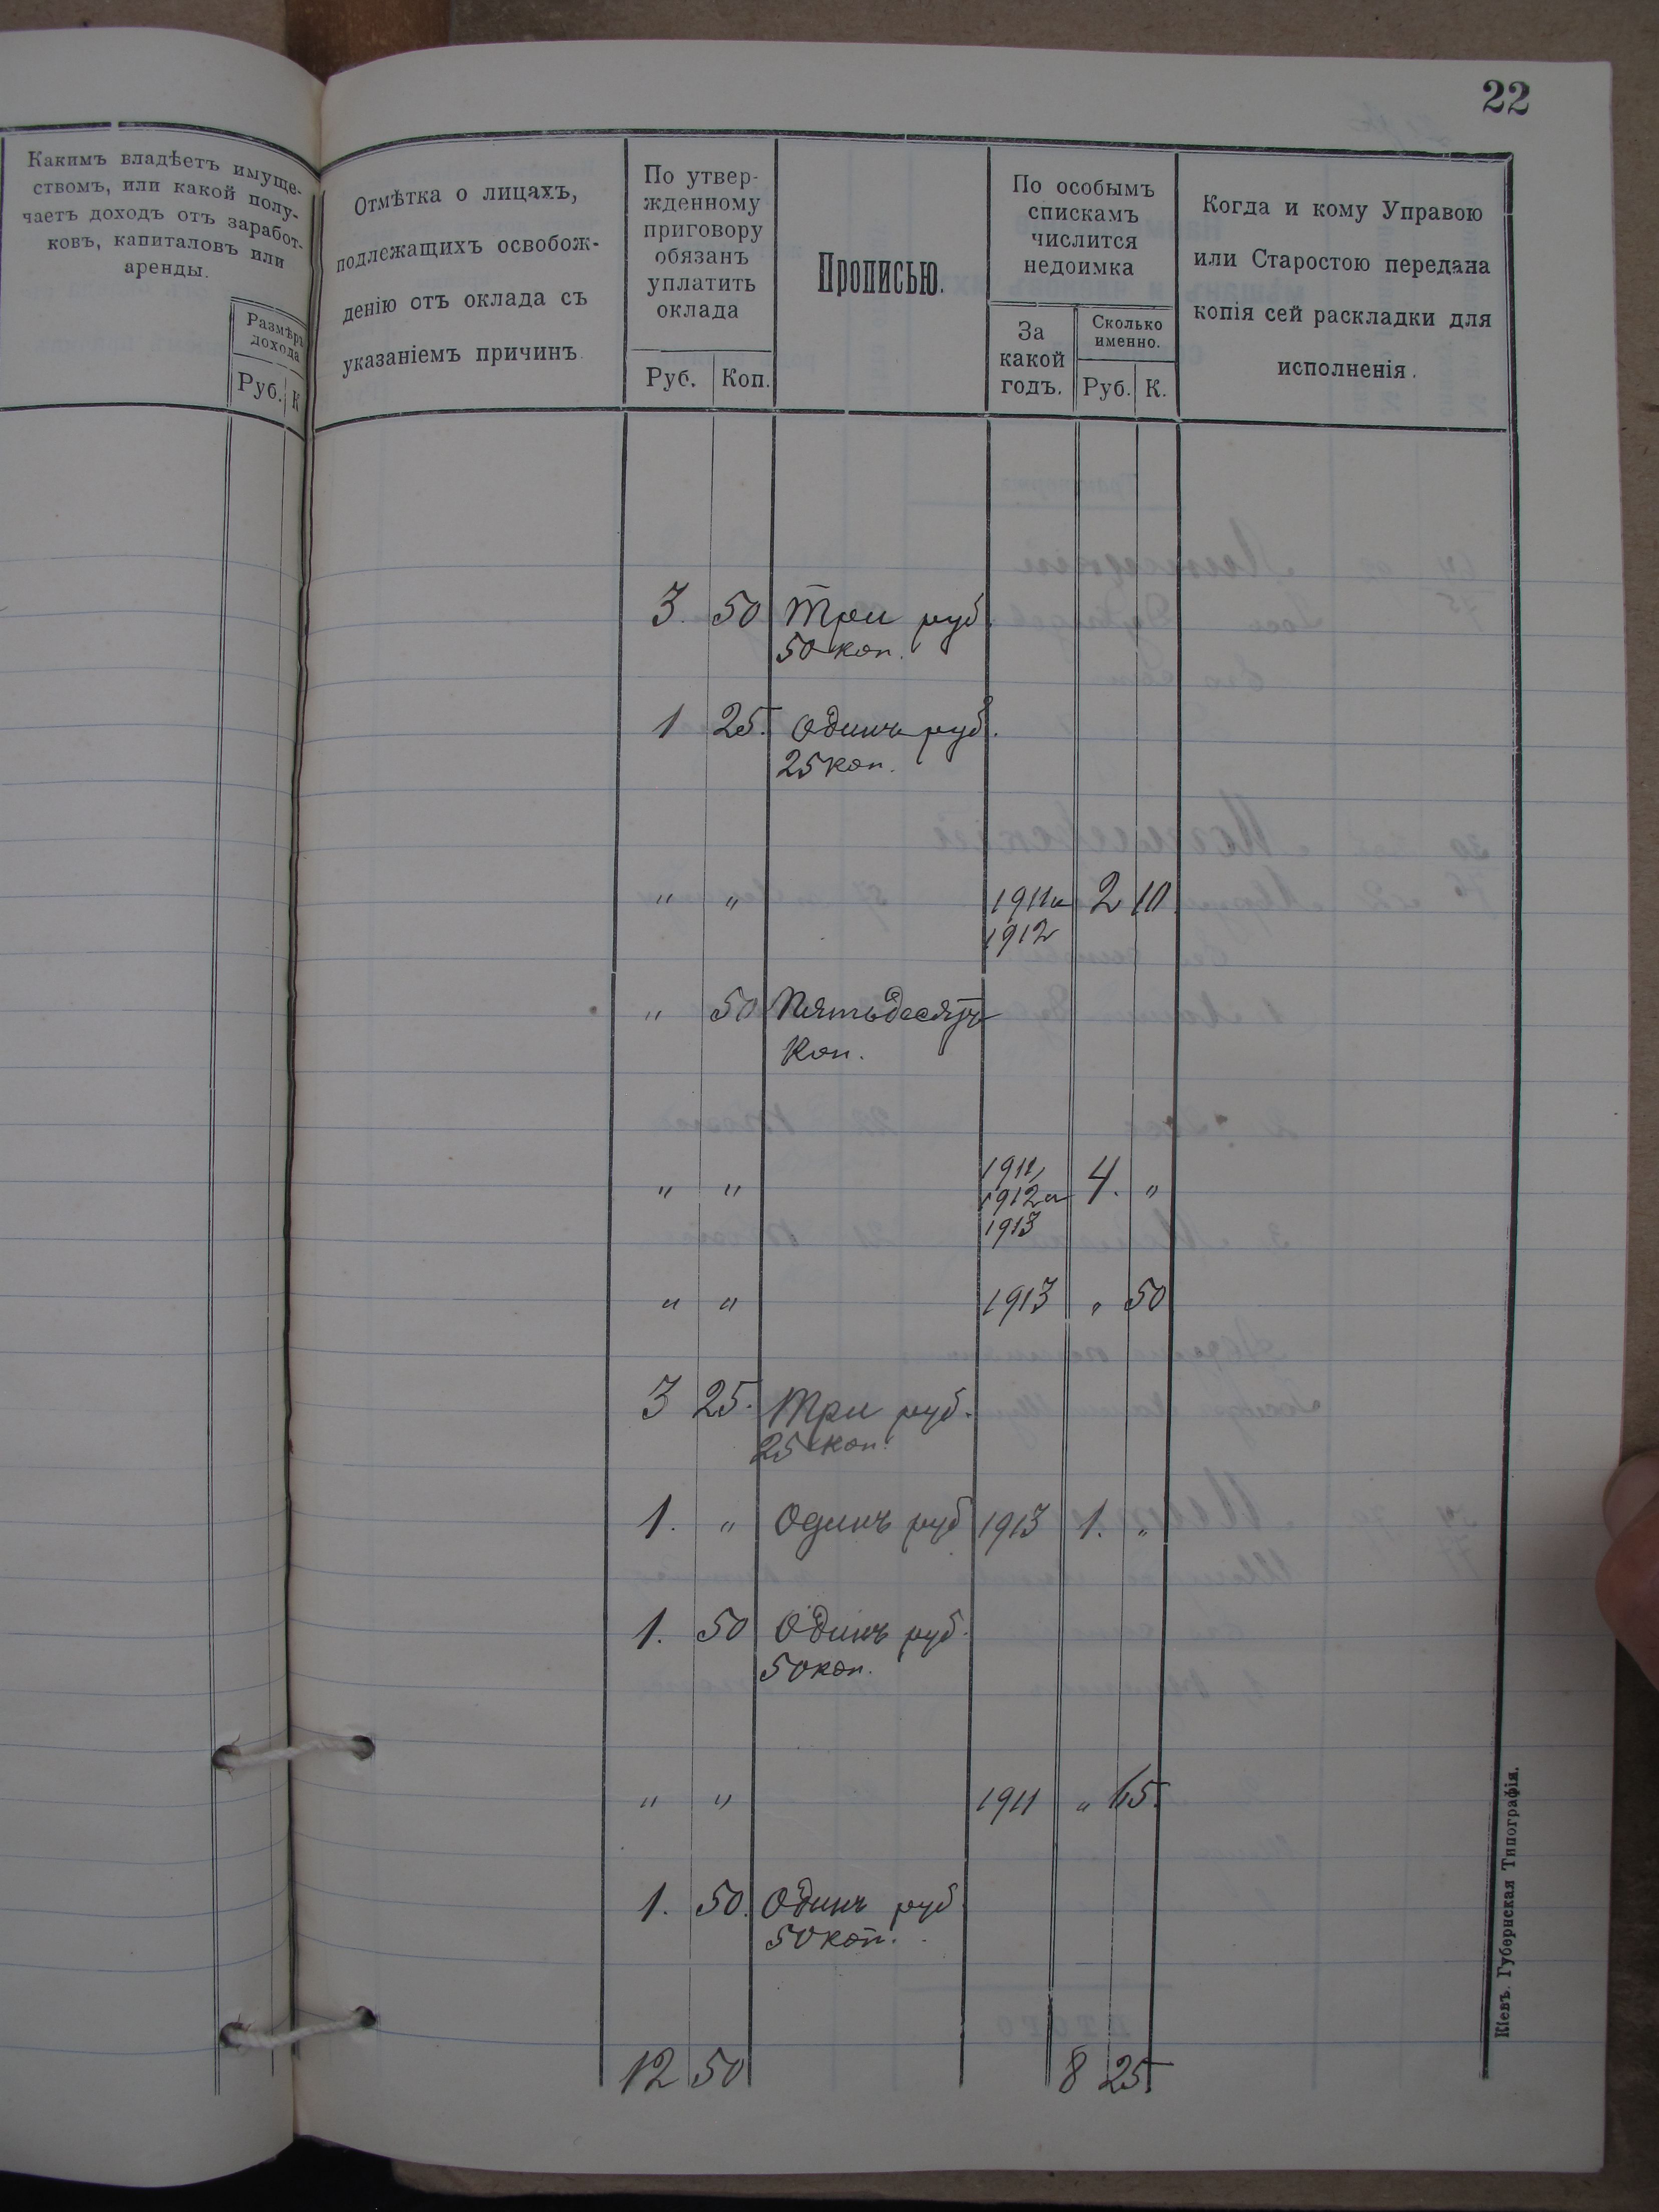 22
Какимъ владѣетъ имуще-
ствомъ, или какой полу-
чаетъ доходъ отъ заработ-
ковъ, капиталовъ или
аренды.
Размѣръ
дохода
Руб. К
Отмѣтка о лицахъ,
подлежащихъ освобож-
денію отъ оклада съ
указаніемъ причинъ
По утвер-
жденному
приговору
обязанъ
уплатить
оклада
Руб. Коп.
Прописью.
По особымъ
спискамъ
числится
недоимка
За
какой
годъ.
Сколько
именно.
Руб. К.
Когда и кому Управою
или Старостою передана
копія сей раскладки для
исполненія.
3. 50 Три руб.
50 коп.
1 25. Одинъ руб.
25 коп.
" " 1911 и 2 10
1912
" 50 Пятьдесятъ
Коп.
1911,
" " 1912 и 4. "
1913
" " 1913 " 50
3 25. Три руб.
25 коп.
1. " Одинъ руб 1913 1. "
1. 50 Одинъ руб.
50 коп.
" " 1911 " 65.
1. 50. Одинъ руб
50 коп.
12 50 8 25.
Кіевъ. Губернская Типографія.